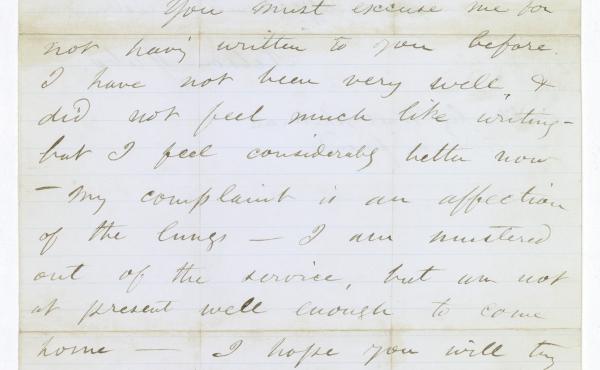 You must excuse me for
not having written to you before.
I have not been very well, &
did not feel much like writing -
but I feel considerably better now
- My complaint is an affection
of the lungs - I am mustered
out of the service, but am not
at present well enough to come
home - I hope you will try